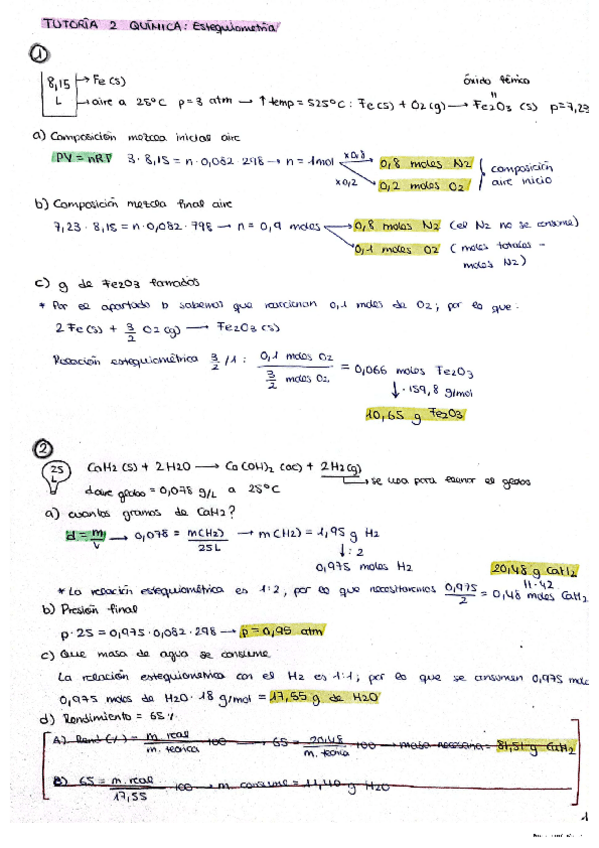 TUTORÍA 2 QUÍMICA: Estequiometría
1
8,15 L → Fe(s)
→ aire a 25ºC p=3 atm → ↑temp = 525ºC: Fe(s) + O2(g) → Fe2O3 (s) p=7,23
óxido férrico
a) Composición mezcla inicial aire
PV=nRT 3·8,15 = n·0,082·298 → n = 1mol
x0,8 0,8 moles N2
x0,2 0,2 moles O2
composición aire inicio
b) Composición mezcla final aire
7,23·8,15 = n·0,082·798 → n = 0,9 moles → 0,8 moles N2 (el N2 no se consume)
0,1 moles O2 (moles totales - moles N2)
c) g de Fe2O3 formados
* Por el apartado b sabemos que reaccionan 0,1 moles de O2; por lo que:
2Fe(s) + 3/2 O2(g) → Fe2O3 (s)
Relación estequiométrica 3/2 /1: 0,1 moles O2 / 3/2 moles O2 = 0,066 moles Fe2O3
↓ ·159,8 g/mol
10,65 g Fe2O3
2
25 L
CaH2(s) + 2H2O → Ca(OH)2 (ac) + 2H2(g)
→ se usa para llenar el globo
dave globo = 0,078 g/L a 25ºC
a) cuantos gramos de CaH2?
d = m/V → 0,078 = m(H2)/25L → m(H2) = 1,95 g H2
↓:2
0,975 moles H2
20,48 g CaH2
* La relación estequiométrica es 1:2, por lo que necesitaremos 0,975/2 = 0,48 moles CaH2
·42
b) Presión final
p·25 = 0,975·0,082·298 → p = 0,95 atm
c) Que masa de agua se consume
La relación estequiometrica con el H2 es 1:1; por lo que se consumen 0,975
0,975 moles de H2O · 18 g/mol = 17,55 g de H2O
d) Rendimiento = 65%
A) Rend (%) = m. real/m. teorica · 100 → 65 = 20,48/m. teorica · 100 → masa necesaria = 31,51 g CaH2
B) 65 = m. real/17,55 · 100 → m consume = 11,40 g H2O
1